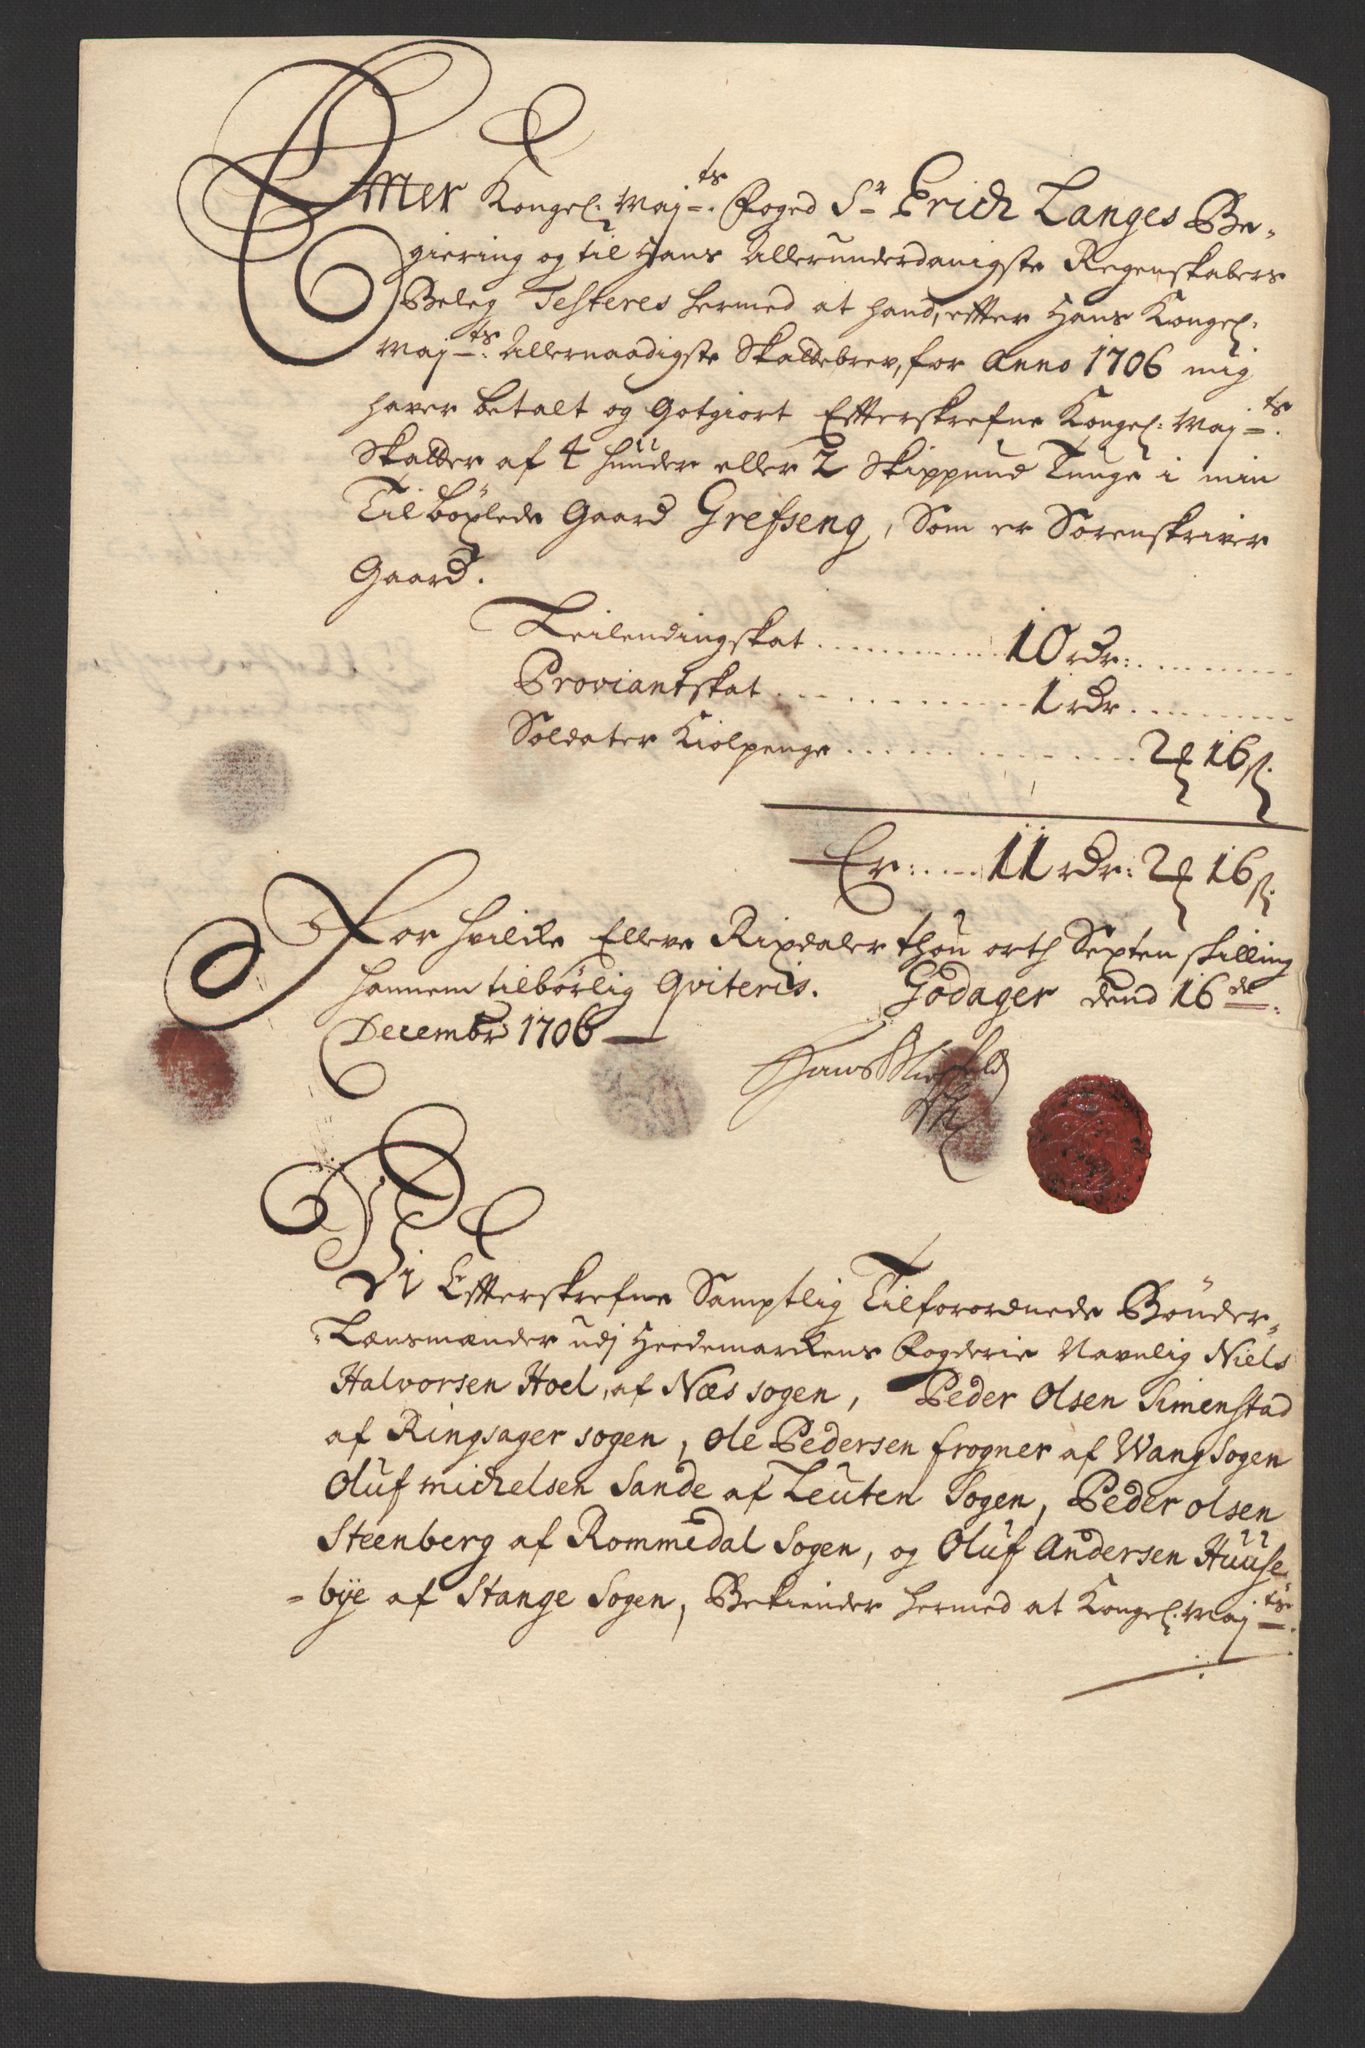 Efter Kongel: Maj:ts Foged Sr Erich Langes Be-
giering og til Hans Allerunderdanigste Regenskabers
Beleg Testeres hermed at hand, efter Hans Kongel:
Maj:ts Allernaadigste Skattebrev, for Anno 1706 mig
haver betalt og Gotgiort Efterskrefne Kongel: Maj:ts
Skatter af 4 huuder eller 2 Skippund Tunge i min
Tilböxlede Gaard Grefseng, Som er Sorenskriver
Gaard.
Leilendingskat ......... 10 rdr: .......
Proviantskat ......... 1 rdr .......
Soldater Kiolpenge ......... 2 ʒ 16 s.
Er: .... 11 rdr: 2 ʒ 16 s.
For hvilcke Elleve Rixdaler thou orth Sexten skilling
hannem tilbørlig Qviteris. Godager dend 16de
Decembr 1706
Hans
Vi Efterskrefne Samptlig Tilforordnede Bönder-
Lænsmænder udj Heedemarckens Fogderie Navnlig Niels
Halvorsen Hoel, af Næs sogen, Peder Olsen Simenstad
af Ringsager sogen, Ole Pedersen frogner af Wang sogen
Oluf michelsen Sande af Leuten Sogen, Peder olsen
Steenberg af Rommedal Sogen, og Oluf Andersen Huuse
-bÿe af Stange Sogen, Bekiender hermed at Kongel: Maj:ts